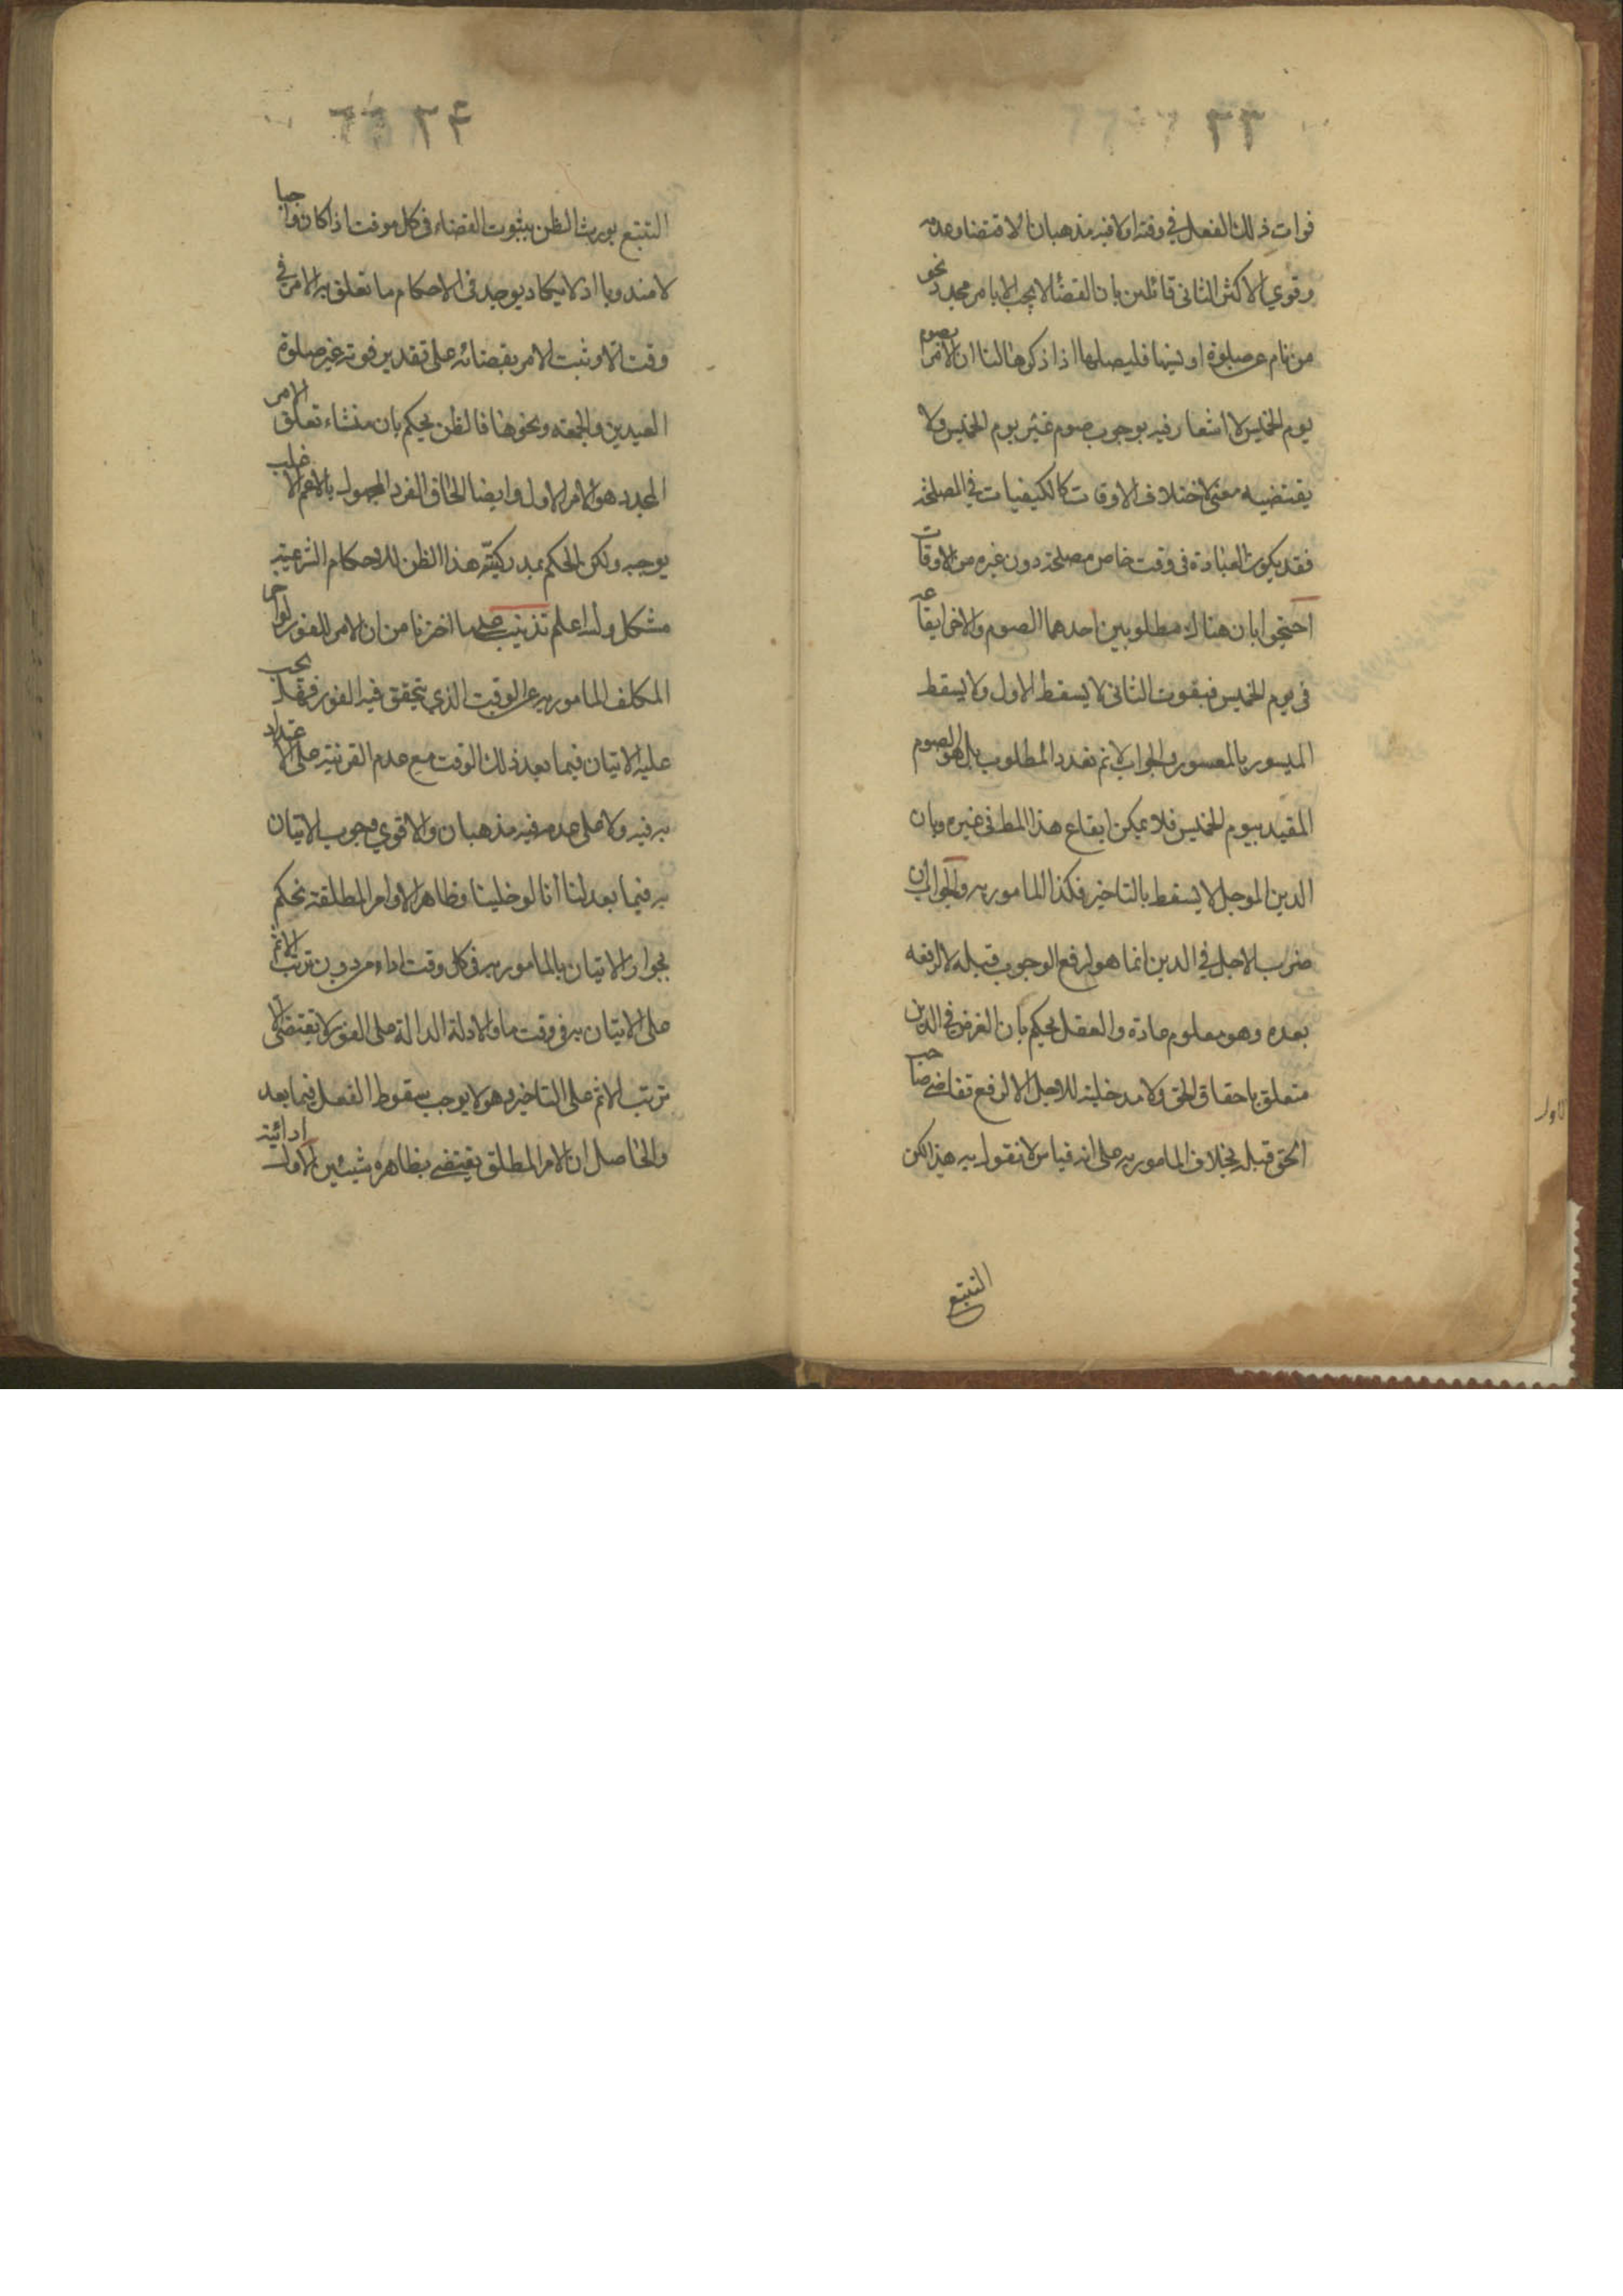 ٣٣
فوات ذلك الفعل في وقته اولا فيه مذهبان الاقتضا وعدمه
وقوي الاكثر الثاني قائلين بان القضا لا يجب الا بامر مجدد نحو
من نام عن صلوة او نسيها فليصلها اذا ذكرها لنا ان الامر بصوم
يوم الخميس لا اشعار فيه بوجوب صوم غير يوم الخميس ولا
يقتضيه معنى لاختلاف الاوقات كالكيفيات في المصلحة
فقد يكون العبادة في وقت خاص مصلحة دون غيره من الاوقات
احتجوا بان هناك مطلوبين احدهما الصوم والاخر ايقاعه
في يوم الخميس فبفوت الثاني لا يسقط الاول ولا يسقط
الميسور بالمعسور والجواب لا نم تعدد المطلوب بل هو الصوم
المقيد بيوم الخميس فلا يمكن ايقاع هذا المط في غيره وبان
الدين الموجل لا يسقط بالتاخير فكذا المامور به والجواب ان
ضرب الاجل في الدين انما هو لرفع الوجوب قبله لا لرفعه
بعده وهو معلوم عادة والعقل يحكم بان الغرض في الدين
متعلق باحقاق الحق ولا مدخلية للاجل الا لرفع تقاضي صاحب
الحق قبله بخلاف المامور به على انه قياس لا نقول به هذا لكن
التتبع
٣۴
التتبع يورث الظن بثبوت القضاء في كل موقت اذا كان واجبا
لا مندوبا اذ لا يكاد يوجد في الاحكام ما تعلق به الامر في
وقت الا وثبت الامر بقضائه على تقدير فوته غير صلوة
العيدين والجمعة ونحوها فالظن يحكم بان منشاء تعلق الامر
المجدد هو الامر الاول وايضا الحاق الفرد المجهول بالاعم الاغلب
يوجبه ولكن الحكم بمدركيّة هذا الظن للاحكام الشرعية
مشكل والله اعلم تذنيب على ما اخترنا من ان الامر للفور لو اخر
المكلف المامور به عن الوقت الذي يتحقق فيه الفور فهل يجب
عليه الاتيان فيما بعد ذلك الوقت مع عدم القرينة على الاعتداد
به فيه ولا على عدمه فيه مذهبان والاقوي وجوب الاتيان
به فيما بعد لنا انا لو خلينا وظاهر الاوامر المطلقة نحكم
بجواز الاتيان بالمامور به في كل وقت اداء من دون ترتب الاثم
على الاتيان به في وقت ما والادلة الدالة على الفور لا تقتضي الا
ترتب الاثم على التاخير وهو لا يوجب سقوط الفعل فيما بعد
والحاصل ان الامر المطلق يقتضي بظاهره شيئين الاول ادائية